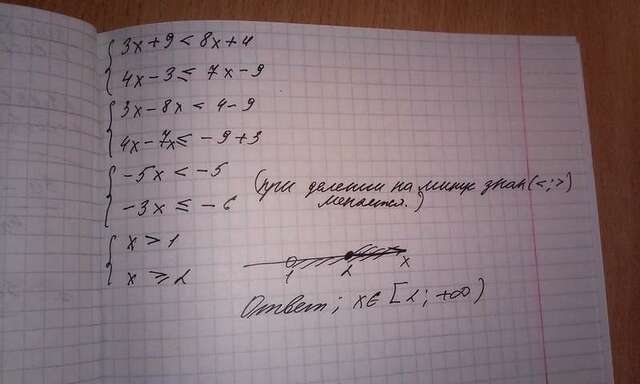 3x+9 < 8x+4
4x-3 ≤ 7x-9
3x-8x < 4-9
4x-7x ≤ -9+3
-5x < -5
-3x ≤ -6
(при делении на минус знак (<;>)
меняется.)
x > 1
x ≥ 2
1 2 x
Ответ; x∈ [2; +∞)